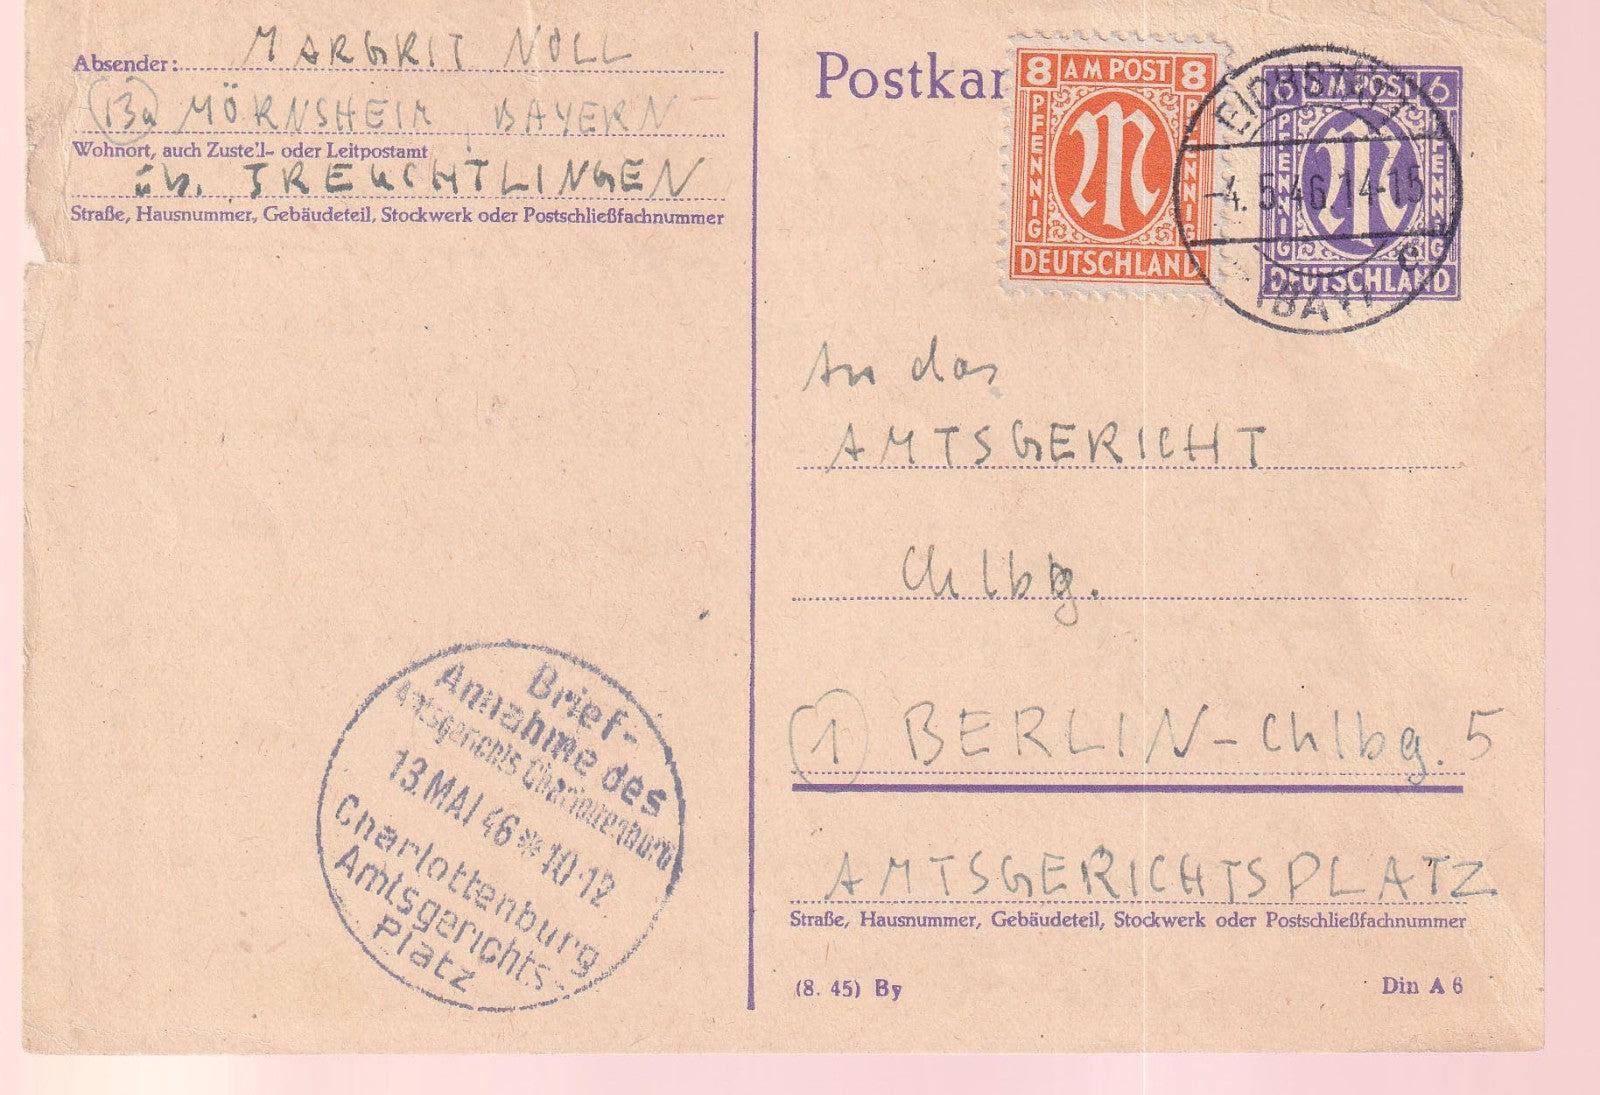 Absender: MARGRIT NOLL
13a MÖRNSHEIM, BAYERN
Wohnort, auch Zustell- oder Leitpostamt
üb. TREUCHTLINGEN
Straße, Hausnummer, Gebäudeteil, Stockwerk oder Postschließfachnummer
Postkar
8 AM POST 8
PFENNIG
PFENNIG
DEUTSCHLAND
6 AM POST 6
PFENNIG
PFENNIG
DEUTSCHLAND
EICHSTÄTT
-4.5.46.14-15
(BAY) C
An das
AMTSGERICHT
Chlbg.
1 BERLIN-Chlbg. 5
AMTSGERICHTSPLATZ
Straße, Hausnummer, Gebäudeteil, Stockwerk oder Postschließfachnummer
(8. 45) By
Din A 6
Brief-
Annahme des
Amtsgerichts Charlottenburg
13.MAI 46*10-12
Charlottenburg
Amtsgerichts-
Platz